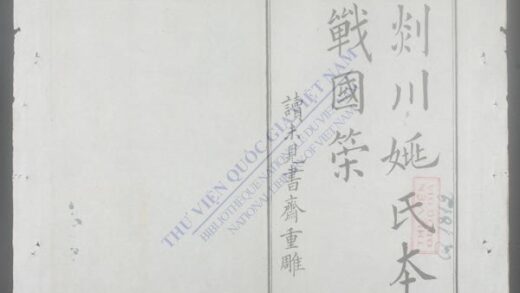 剡川姚氏本
戰國策
讀未見書齋重雕
THƯ VIỆN QUỐC GIA VIỆT NAM
BIBLIOTHÈQUE NATIONALE DU VIETNAM
NATIONAL LIBRARY OF VIETNAM